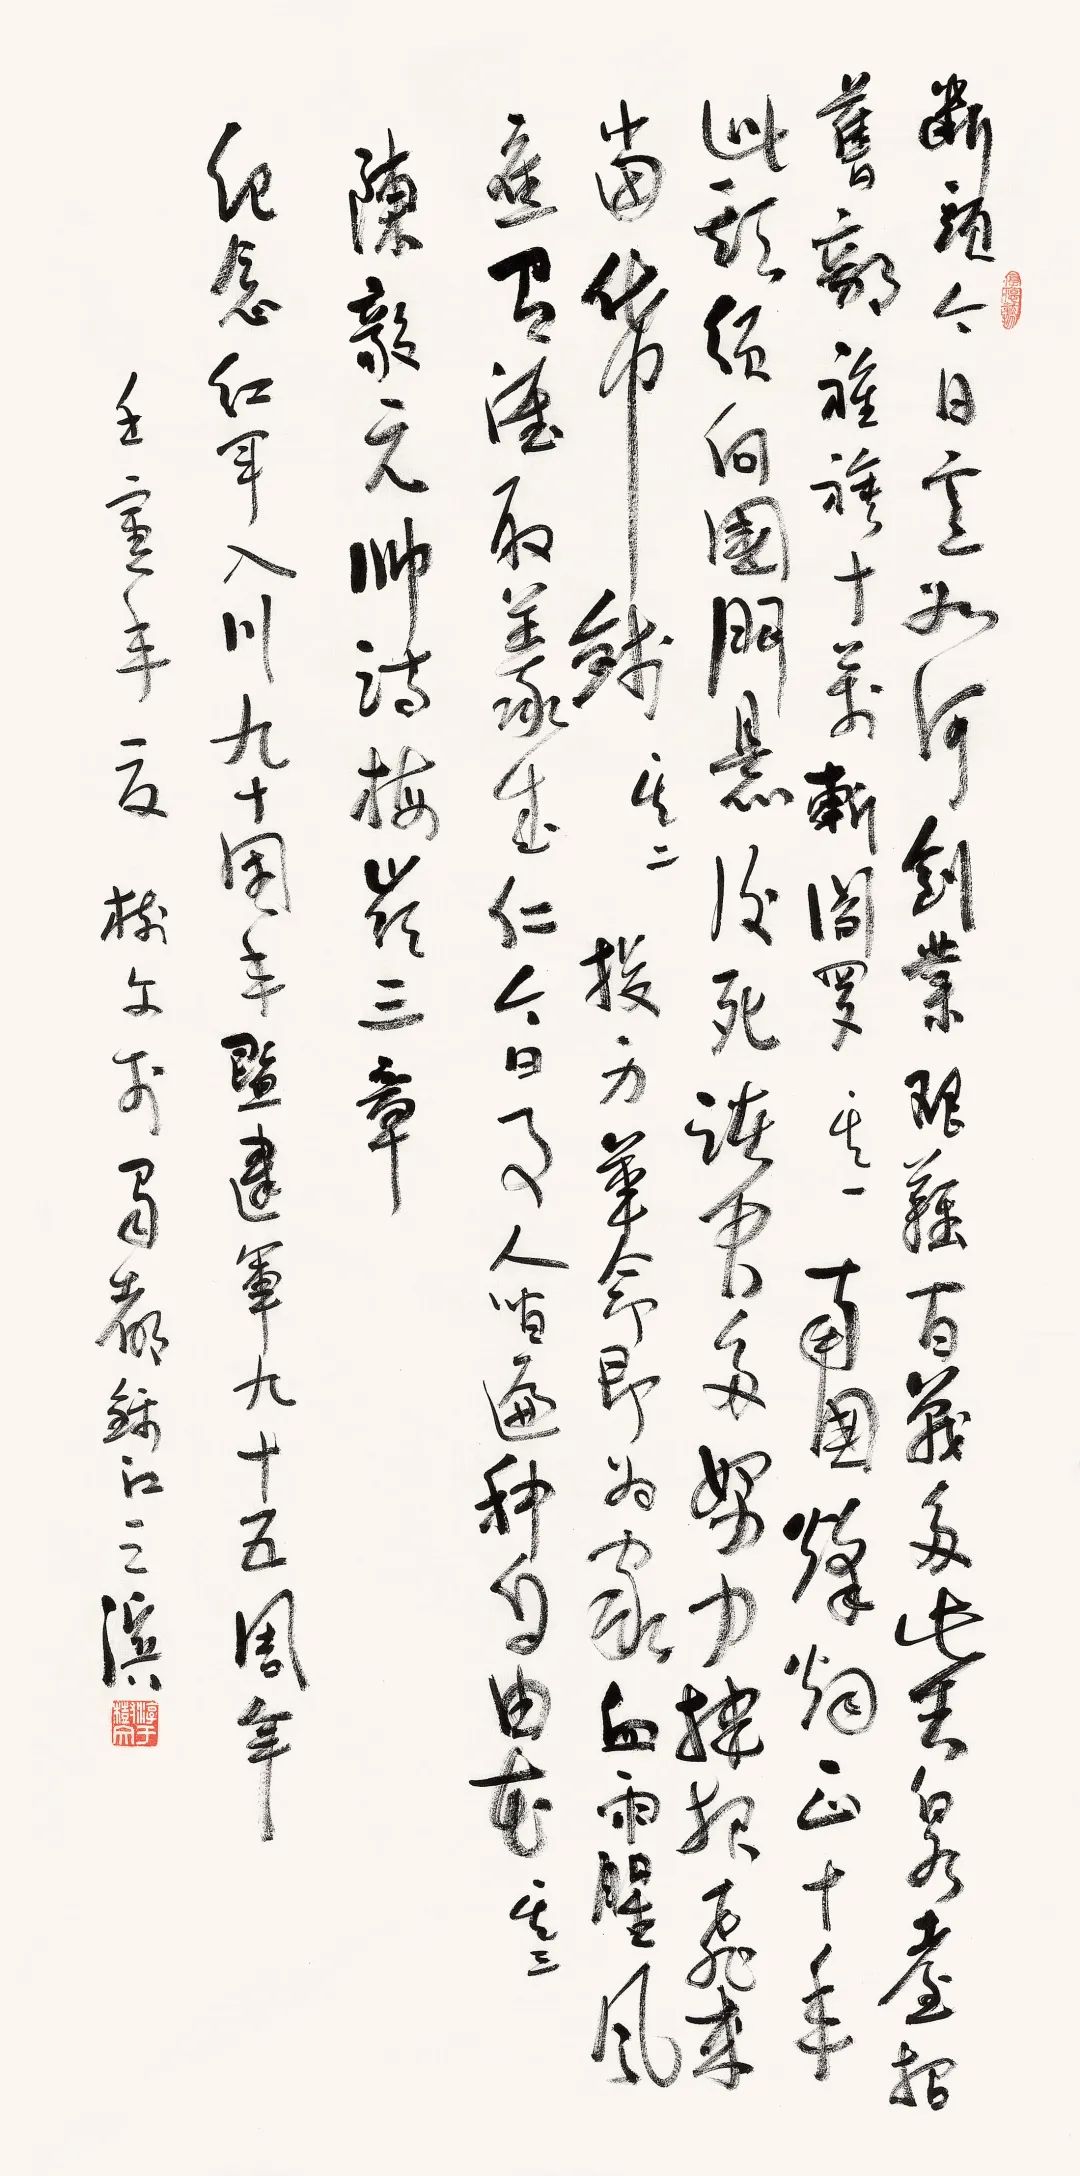 斷頭今日意如何創業艱難百戰多此去泉臺招
舊部旌旗十萬斬閻羅其一南國烽煙正十年
此頭須向國門懸後死諸君多努力捷報飛來
當紙錢其二投身革命即為家血雨腥風
應有涯取義成仁今日事人間遍種自由花其三
陳毅元帥詩梅嶺三章
紀念紅軍入川九十周年暨建軍九十五周年
壬寅年夏樹文於蜀都錦江之濱
淳于樹文